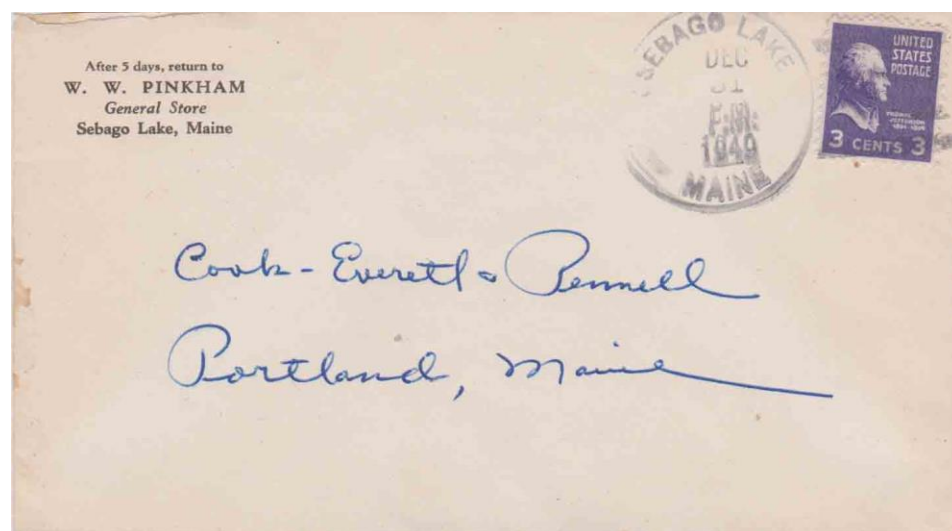 After 5 days, return to
W. W. PINKHAM
General Store
Sebago Lake, Maine
SEBAGO LAKE
DEC
31
P.M.
1949
MAINE
UNITED
STATES
POSTAGE
THOMAS
JEFFERSON
3 CENTS 3
Cook - Everett & Pennell
Portland, Maine